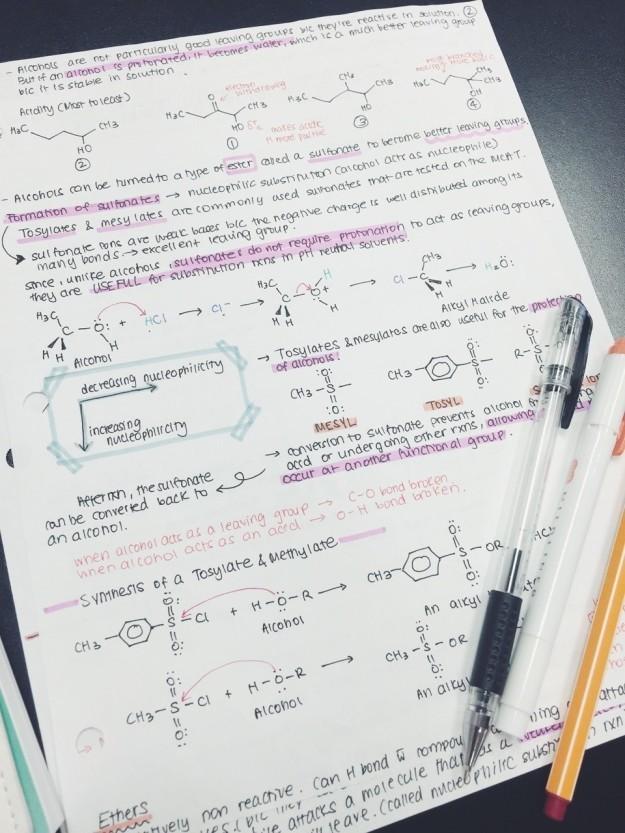 ②
- Alcohols are not particularly good leaving groups b/c they're reactive in solution.
But if an alcohol is protonated, it becomes water, which is a much better leaving group
b/c it is stable in solution.
Acidity (Most to least)
electron
withdrawing
most branched
H₃C CH₃
HO
②
H₃C O CH₃
HO δ⁺
①
makes acidic
H more positive
H₃C CH₃ CH₃
HO
③
H₃C CH₃ CH₃
OH
④
- Alcohols can be turned to a type of ester called a sulfonate to become better leaving groups.
Formation of sulfonates → nucleophilic substitution (alcohol acts as nucleophile)
Tosylates & mesylates are commonly used sulfonates that are tested on the MCAT.
sulfonate ions are weak bases b/c the negative charge is well distributed among its
many bonds → excellent leaving group.
since, unlike alcohols, sulfonates do not require protonation to act as leaving groups,
they are USEFULL for substitution rxns in pH neutral solvents.
H₃C C Ö: + HCl → Cl:⁻ H₃C C O⁺ H → Cl C CH₃ → H₂Ö:
H H H
Alcohol
H H H
H H
Alkyl Halide
decreasing nucleophilicity
increasing
nucleophilicity
→ Tosylates & mesylates are also useful for the protection
of alcohols:
CH₃ - S -
:O:
:O:
MESYL
CH₃ S
:O:
:O:
TOSYL
R-S
→ conversion to sulfonate prevents alcohol
acid or undergoing other rxns, allowing
occur at another functional group.
After rxn, the sulfonate
can be converted back to
an alcohol.
when alcohol acts as a leaving group → C-O bond broken
when alcohol acts as an acid → O-H bond broken.
Synthesis of a Tosylate & Methylate
CH₃ S Cl + H-Ö-R → CH₃ S OR HCl
:O:
:O:
Alcohol
An alkyl
CH₃-S-Cl + H-Ö-R → CH₃-S-OR
:O:
:O:
Alcohol
An alkyl
Ethers
non reactive. Can H bond w
attacks a molecule that
leave. (called nucleophilic rxn